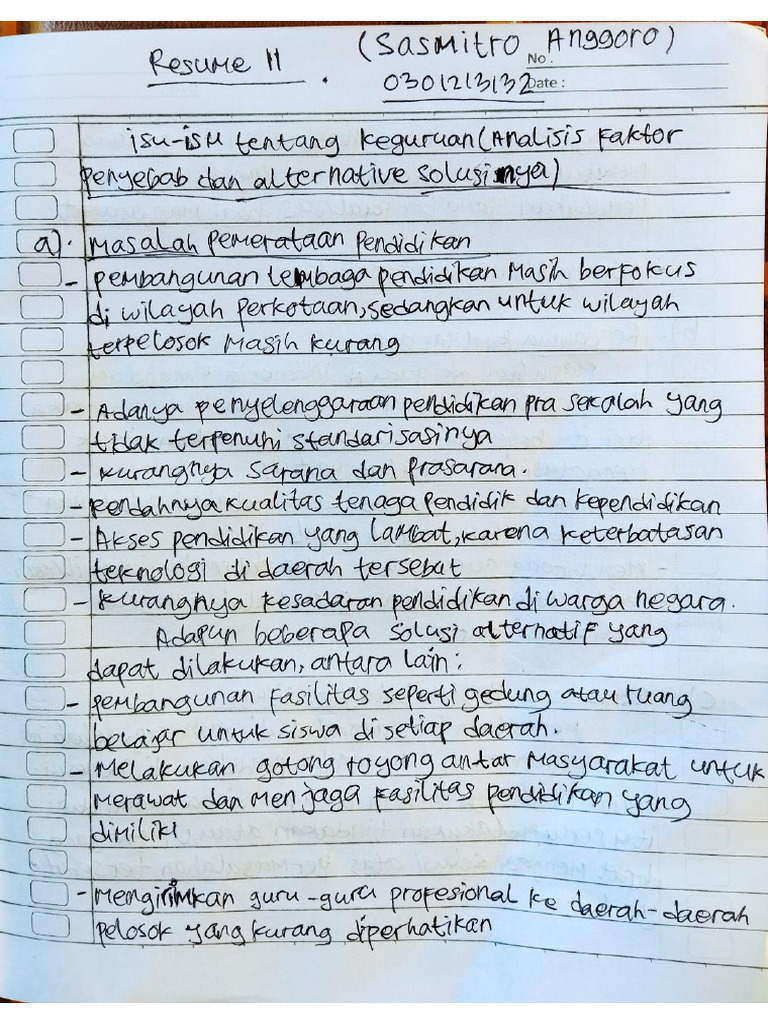 Resume 11 . (Sasmitro Anggoro)
No.
0301213132 Date :
isu-isu tentang keguruan (Analisis Faktor
Penyebab dan alternative solusinya)
a). Masalah pemerataan pendidikan
- pembangunan lembaga pendidikan Masih berfokus
di wilayah perkotaan, sedangkan untuk wilayah
terpelosok Masih kurang
- Adanya penyelenggaraan pendidikan pra sekolah yang
tidak terpenuhi standarisasinya
- kurangnya sarana dan prasarana.
- Rendahnya kualitas tenaga pendidik dan kependidikan
- Akses pendidikan yang lambat, karena keterbatasan
teknologi di daerah tersebut
- kurangnya kesadaran pendidikan di warga negara.
Adapun beberapa solusi alternatif yang
dapat dilakukan, antara lain :
- pembangunan fasilitas seperti gedung atau ruang
belajar untuk siswa di setiap daerah.
- Melakukan gotong royong antar Masyarakat untuk
Merawat dan Menjaga fasilitas pendidikan yang
dimiliki
- Mengirimkan guru-guru profesional ke daerah-daerah
pelosok yang kurang diperhatikan